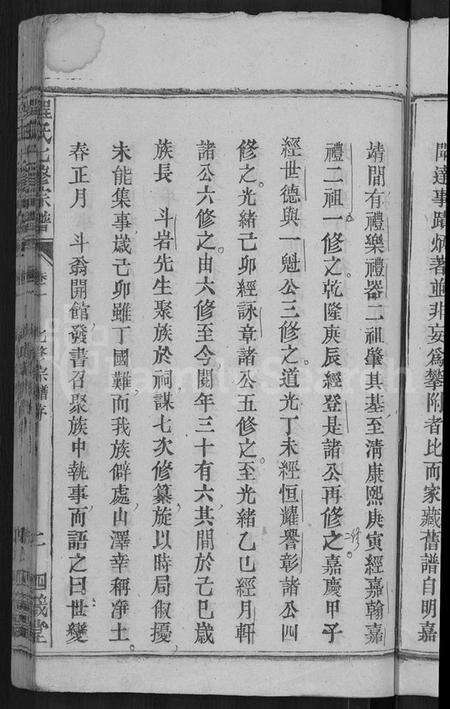 閒達事蹟炳著並非妄爲攀附者比而家藏舊譜自明嘉
靖間有禮樂禮器二祖肇其基至清康熙庚寅經嘉翰嘉
禮二祖一修之乾隆庚辰經登是諸公再修之嘉慶甲子
經世德與一魁公三修之道光丁未經恒耀譽彰諸公四
修之光緒己卯經詠章諸公五修之至光緒乙巳經月軒
諸公六修之由六修至今閱年三十有六其間於己巳歲
族長 斗岩先生聚族於祠謀七次修纂旋以時局俶擾
未能集事歲己卯雖丁國難而我族僻處山澤幸稱淨土
春正月 斗翁開館發書召聚族中執事而語之曰世變
程氏七修宗譜 卷一 七修宗譜序 二 四箴堂
FamilySearch